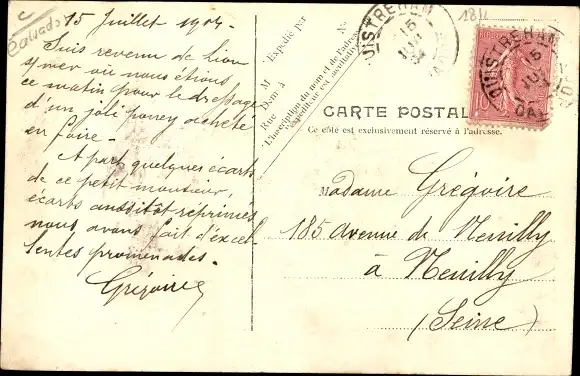 Calvados
15 Juillet 1904.
Suis revenu de Lion
s/mer où nous étions
ce matin pour le dressage
d'un joli poney acheté
en foire -
A part quelques écarts
de ce petit monsieur,
écarts aussitôt réprimés
nous avons fait d'excel-
lentes promenades.
Grégoire
Expédié par
M
Rue
Dom à
No
L'inscription du nom et de l'adresse
de l'expéditeur est facultative
OUISTREHAM
15
JUIL
04
1811
OUISTREHAM
15
JUIL
04
10
CARTE POSTAL
Ce côté est exclusivement réservé à l'adresse.
Madame Grégoire
185 Avenue de Neuilly
à Neuilly
(Seine)